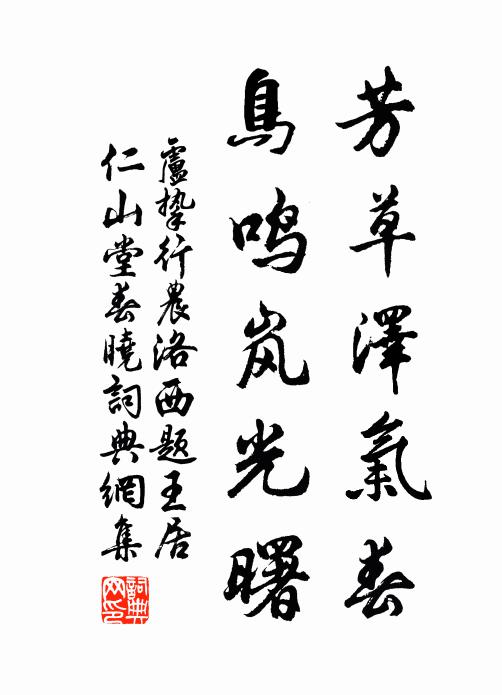 芳草澤氣春
鳥鳴岚光曙
盧挚行農洛西題王居
仁山堂春曉詞典網集
詞典網印